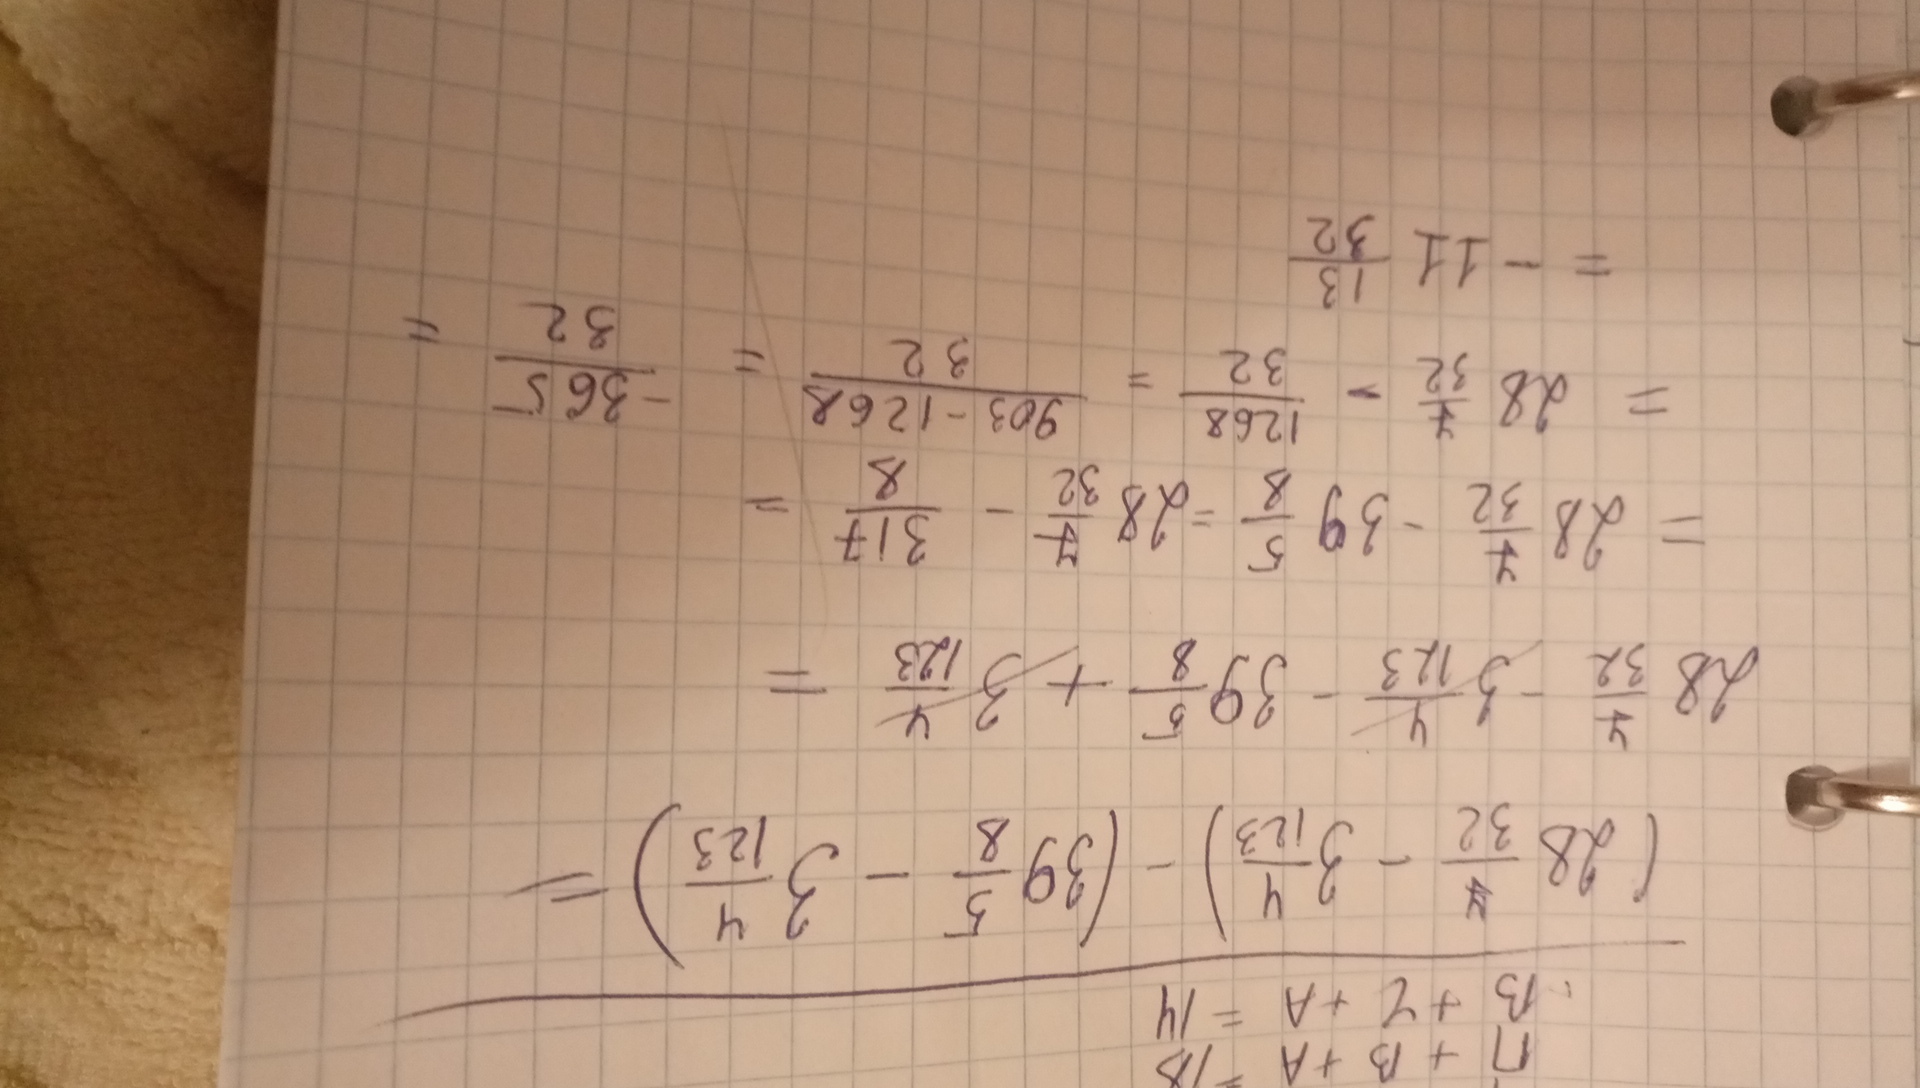 П + В + А = 18
В + Z + А = 14
(28 7/32 - 3 4/123) - (39 5/8 - 3 4/123) =
28 7/32 - 3 4/123 - 39 5/8 + 3 4/123 =
= 28 7/32 - 39 5/8 = 28 7/32 - 317/8 =
= 28 7/32 - 1268/32 = 903-1268/32 = -365/32 =
= - 11 13/32